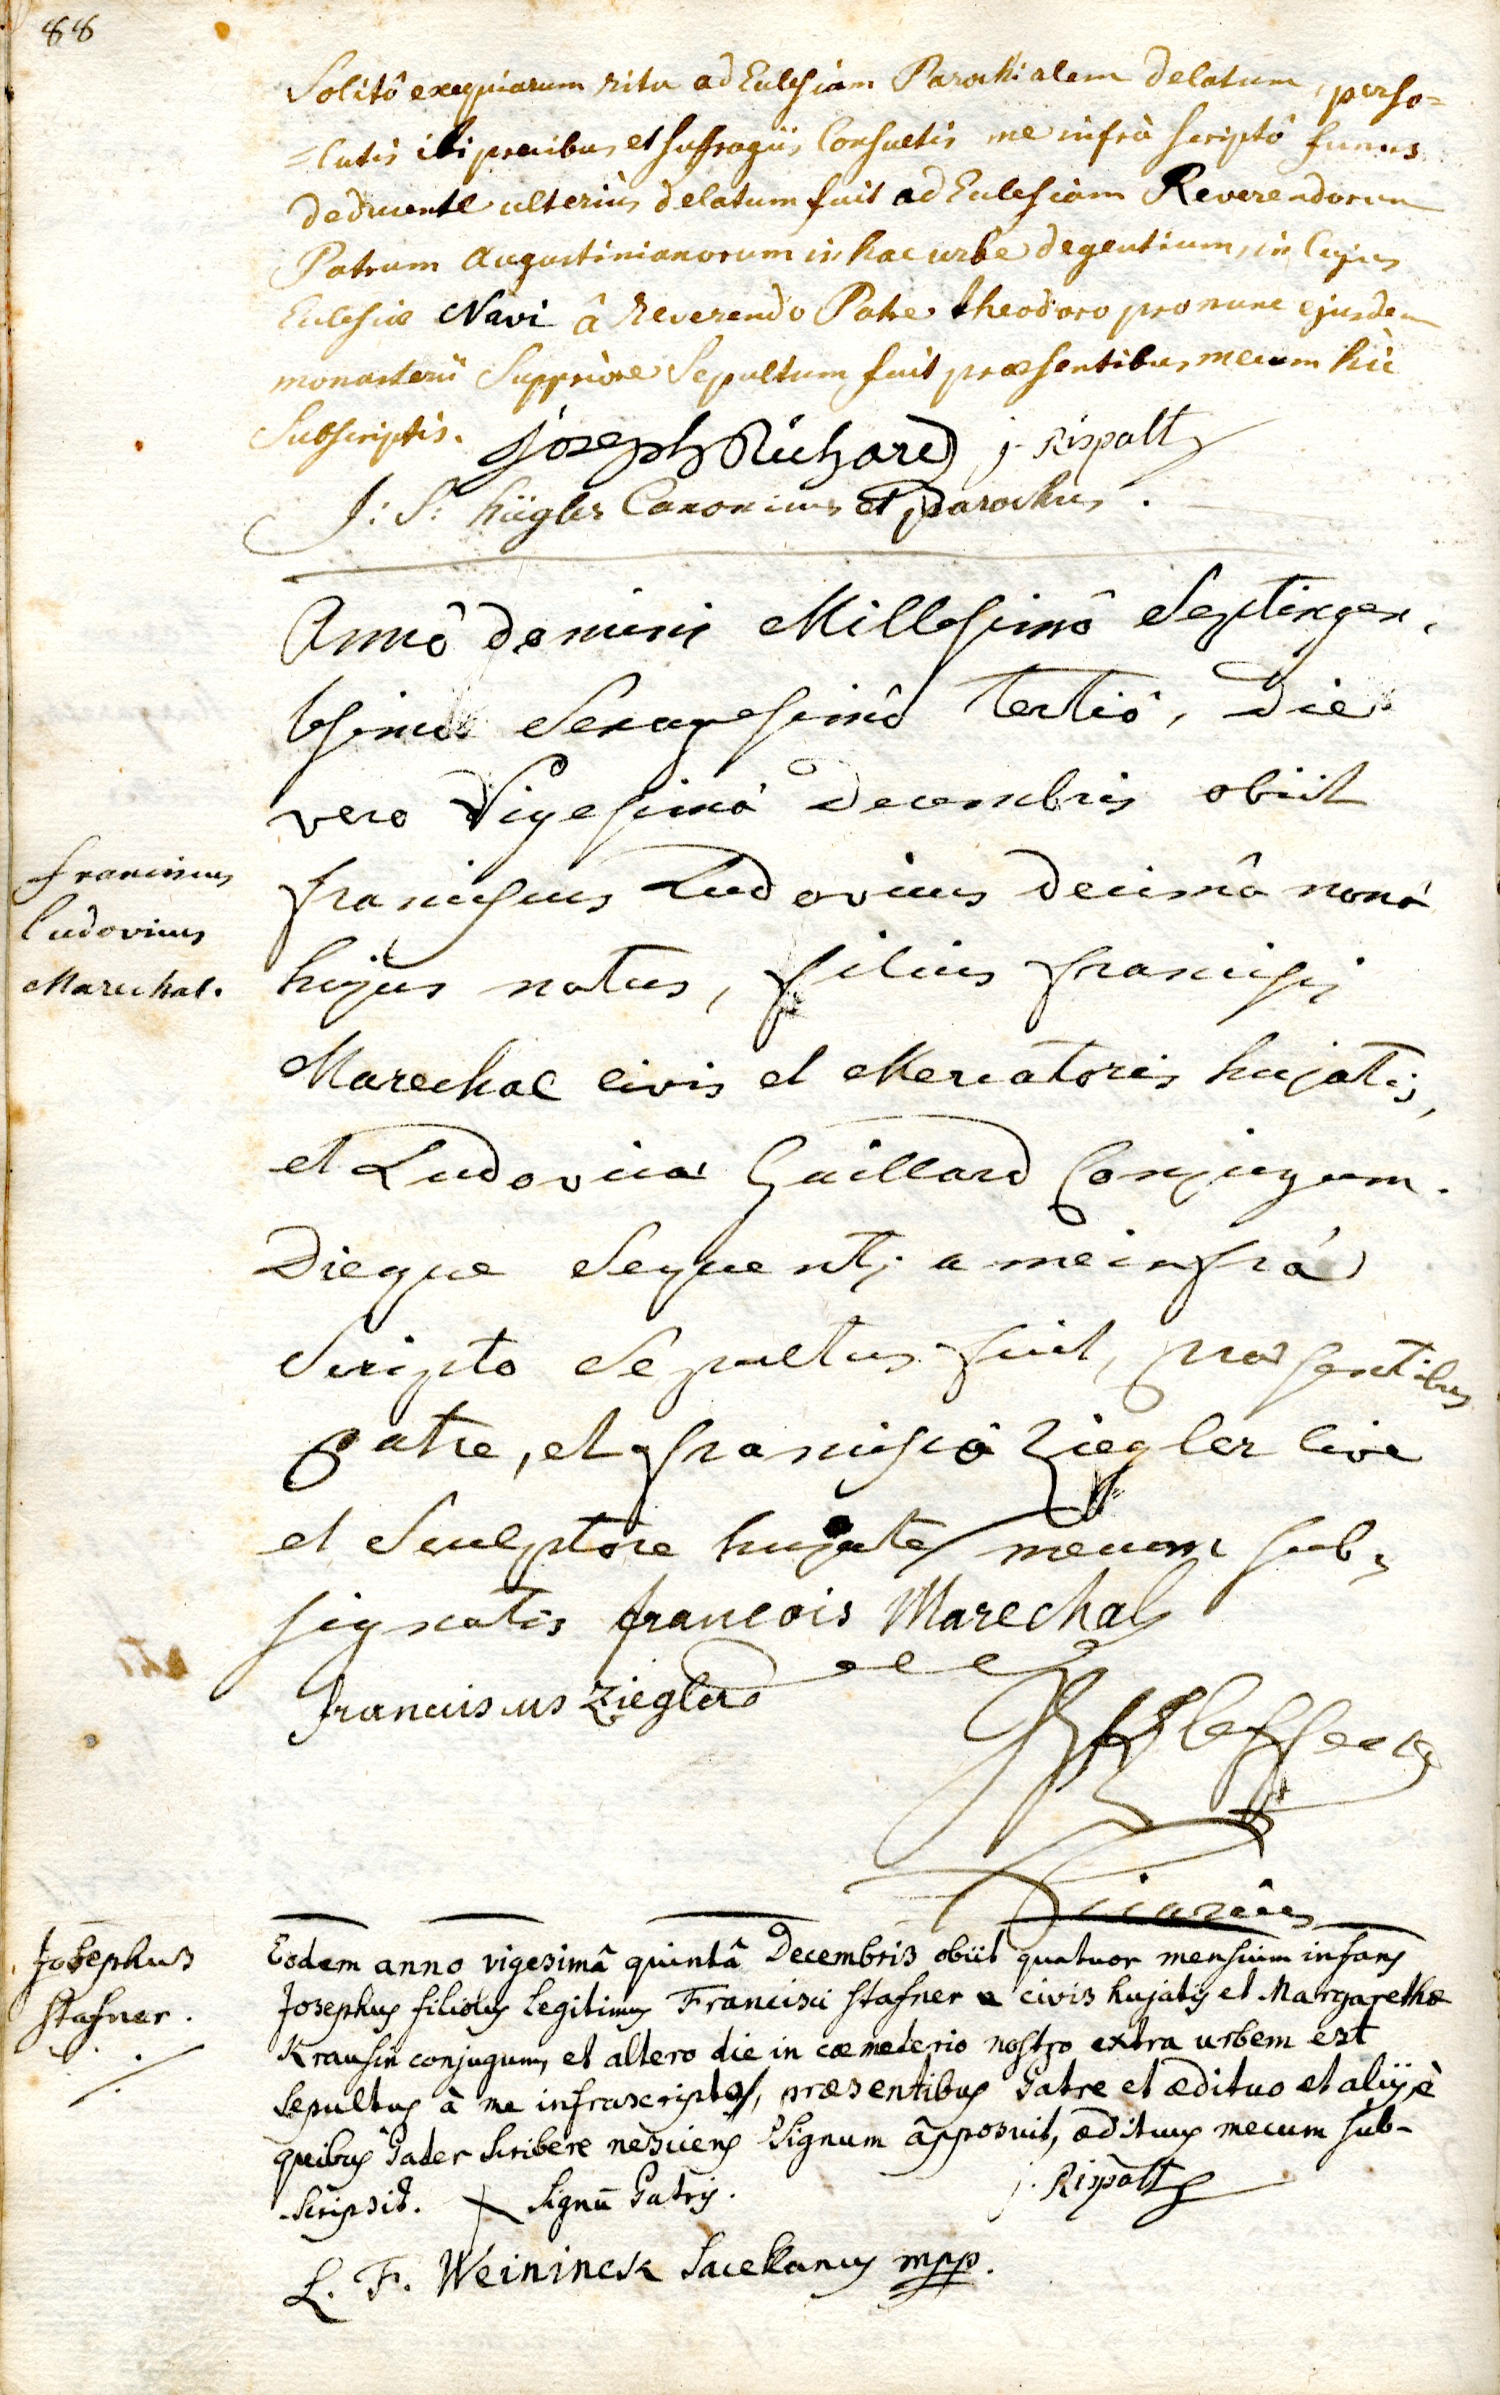 88
Solitô exequiarum ritu ad Eulesiam Parochialem delatum, perso=
=lutis ibi precibus et suffragiis Consuetis me infrà scriptô funus
deducente ulteriùs delatum fuit ad Eulesiam Reverendorum
Patrum Augustinianorum in hac urbe degentium, in Cujus
Eulesiæ Navi â Reverendo Patre theodoro pro nunc ejusdem
monasterii Suppriore Sepultum fuit præsentibus mecum hìc
Subscriptis. joseph Richard j. Rispalt
J: S: hügler Canonicus et parochus.
Annô domini Millesimô Septingen,
tesimo Sexagesimô tertiô, die
vero Vigesimâ decembris obiit
franciscus
ludovicus
Marechal.
franciscus Ludovicus decimâ nonâ
hujus natus, filius francisci
Marechal civis et Mercatoris hujatis,
et Ludovica Gaillard Conjugum.
Dieque Sequenti a me infrà
Scripto Sepultus fuit, præsentibus
Patre, et franciscô Ziegler Cive
et Sculptore hujate mecum sub,
signatis francois Marechal
franciscus Ziegler
Vicarius
Josephus
Stafner.
Eodem anno vigesimâ quintâ Decembris obiit quatuor mensium infans
Josephus filiolus legitimus Francisci Stafner civis hujatis et Margarethæ
Krausin conjugum, et altero die in cœmeterio nostro extra urbem est
Sepultus à me infrascripto, præsentibus Patre et ædituo et aliis, è
quibus Pater scribere nesciens Signum apposuit, ædituus mecum sub-
-scripsit. + Signū Patris. j. Rispalt
L. F. Weininck Sacellanus mpp.